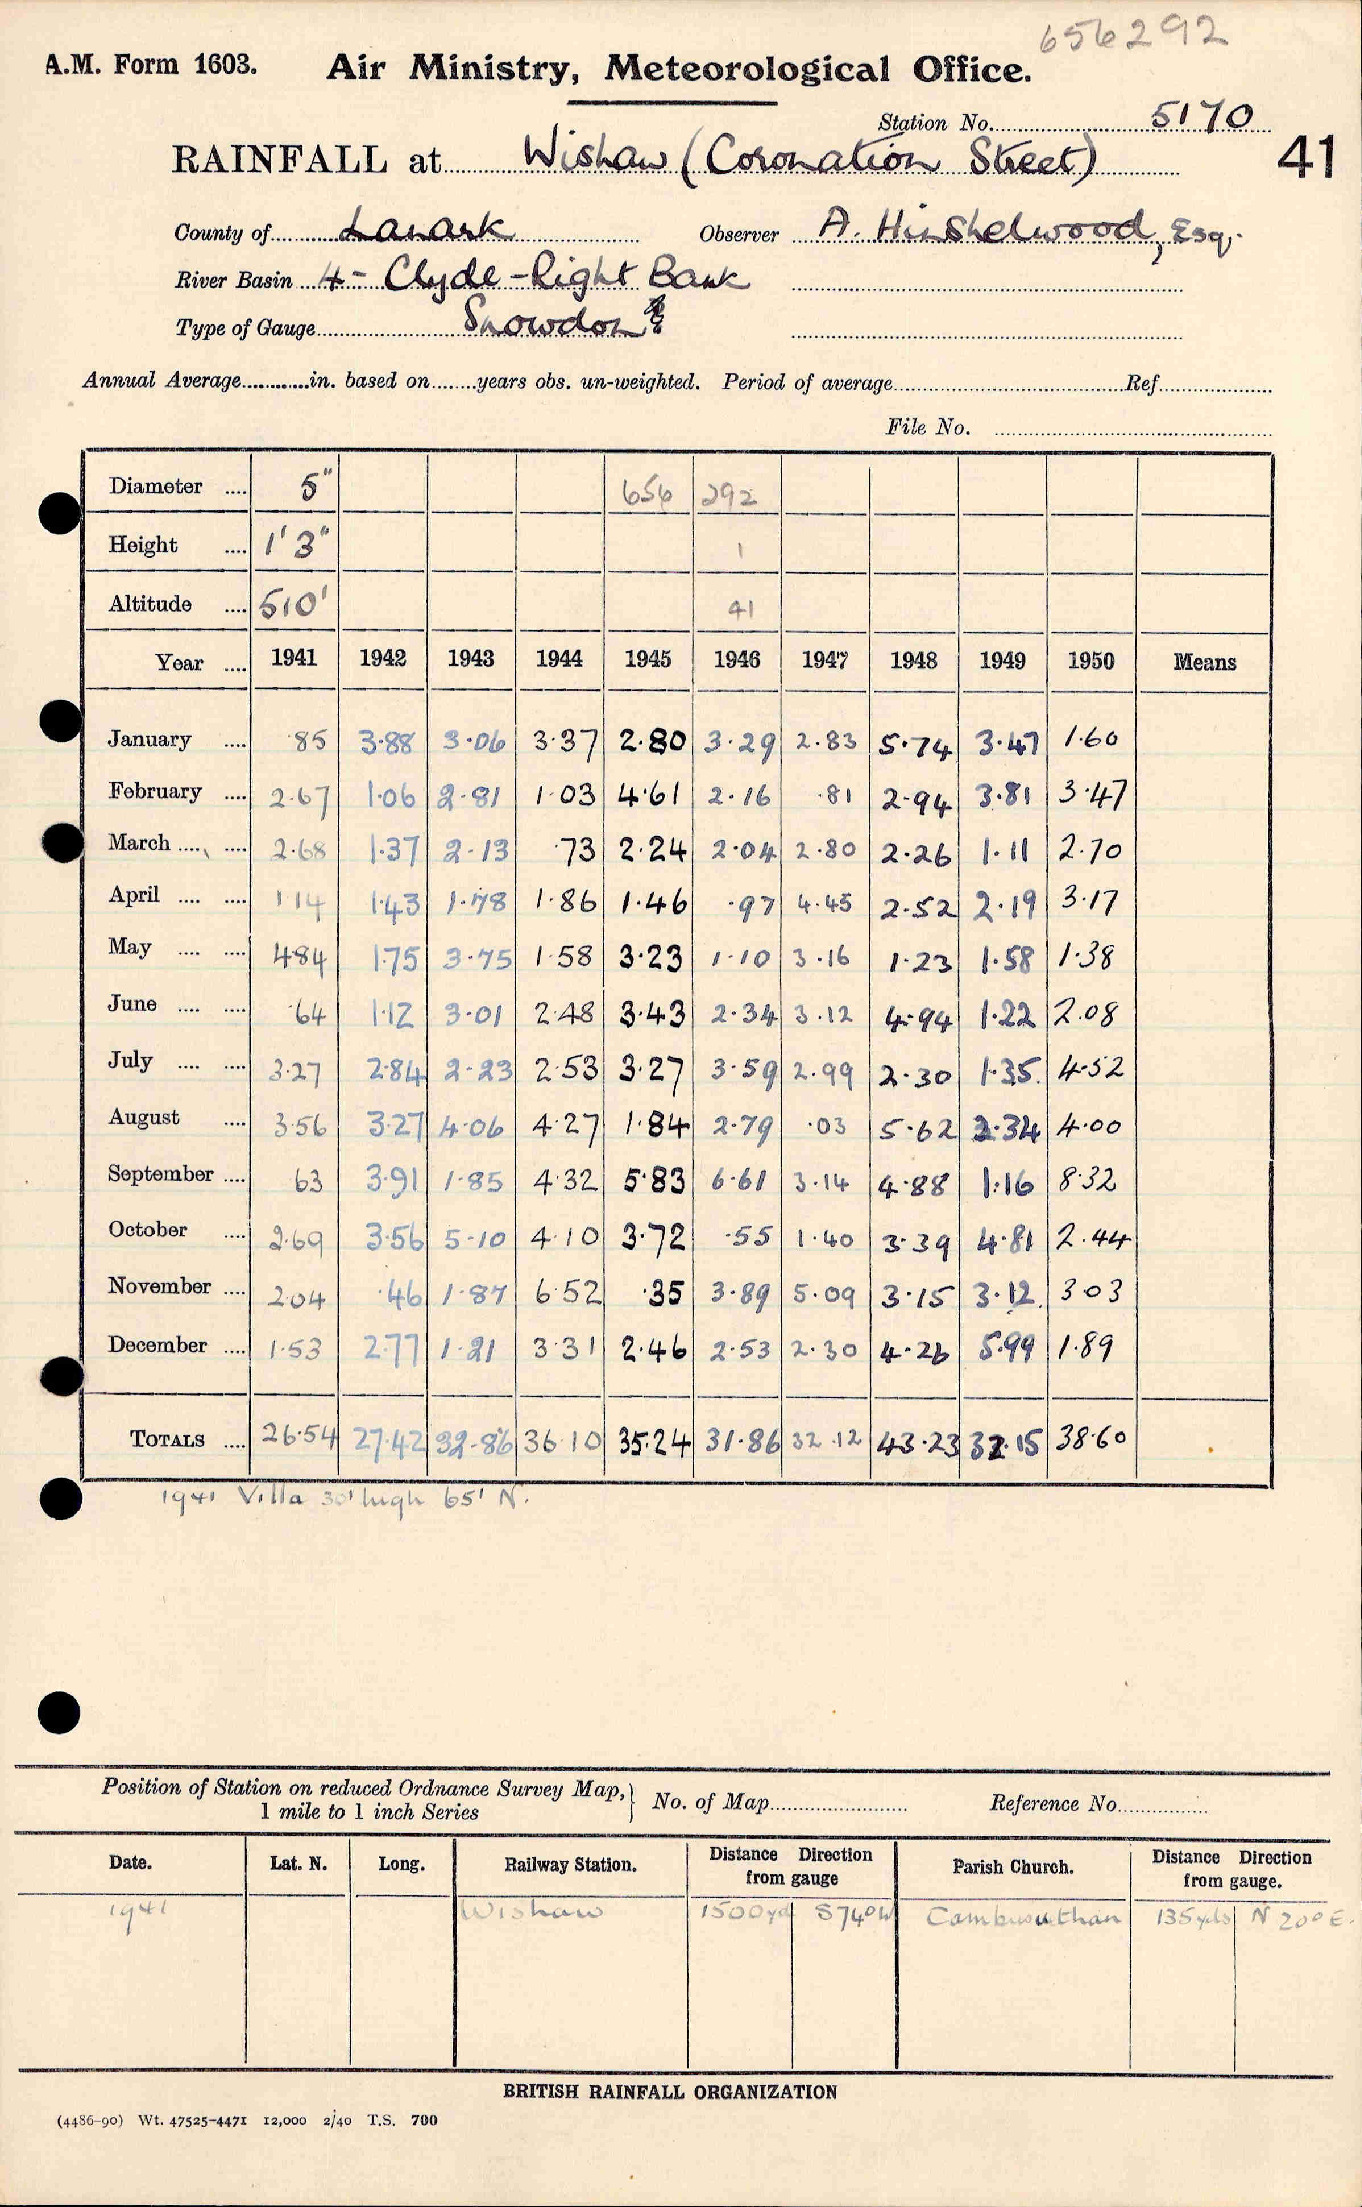 656292
A.M. Form 1603. Air Ministry, Meteorological Office.
Station No. 5170
RAINFALL at Wishaw (Coronation Street) 41
County of Lanark Observer A. Hinshelwood, Esq.
River Basin 4 - Clyde - Right Bank
Type of Gauge Snowdon
Annual Average in. based on years obs. un-weighted. Period of average Ref
File No.
Diameter .... 5" 656 292
Height .... 1' 3" 1
Altitude .... 510' 41
Year .... 1941 1942 1943 1944 1945 1946 1947 1948 1949 1950 Means
January .... ·85 3·88 3·06 3·37 2·80 3·29 2·83 5·74 3·47 1·60
February .... 2·67 1·06 2·81 1·03 4·61 2·16 ·81 2·94 3·81 3·47
March .... .... 2·68 1·37 2·13 ·73 2·24 2·04 2·80 2·26 1·11 2·70
April .... .... 1 14 1·43 1·78 1·86 1·46 ·97 4·45 2·52 2·19 3·17
May .... .... 4·84 1·75 3·75 1·58 3·23 1·10 3·16 1·23 1·58 1·38
June .... .... ·64 1·12 3·01 2·48 3·43 2·34 3·12 4·94 1·22 2·08
July .... .... 3·27 2·84 2·23 2·53 3·27 3·59 2·99 2·30 1·35 4·52
August .... 3·56 3·27 4·06 4·27 1·84 2·79 ·03 5·62 2·34 4·00
September .... 63 3·91 1·85 4·32 5·83 6·61 3·14 4·88 1·16 8·32
October .... 2·69 3·56 5·10 4·10 3·72 ·55 1·40 3·39 4·81 2·44
November .... 2·04 ·46 1·87 6·52 ·35 3·89 5·09 3·15 3·12 3·03
December .... 1·53 2·77 1·21 3·31 2·46 2·53 2·30 4·26 5·99 1·89
TOTALS .... 26·54 27·42 32·86 36·10 35·24 31·86 32·12 43·23 32·15 38·60
1941 Villa 30' high 65' N.
Position of Station on reduced Ordnance Survey Map,} No. of Map Reference No.
1 mile to 1 inch Series
Date. Lat. N. Long. Railway Station. Distance from gauge Direction Parish Church. Distance from gauge. Direction
1941 Wishaw 1500yd S 74° W Cambusnethan 135yds N 20° E.
BRITISH RAINFALL ORGANIZATION
(4486-90) Wt. 47525-4471 12,000 2/40 T.S. 700